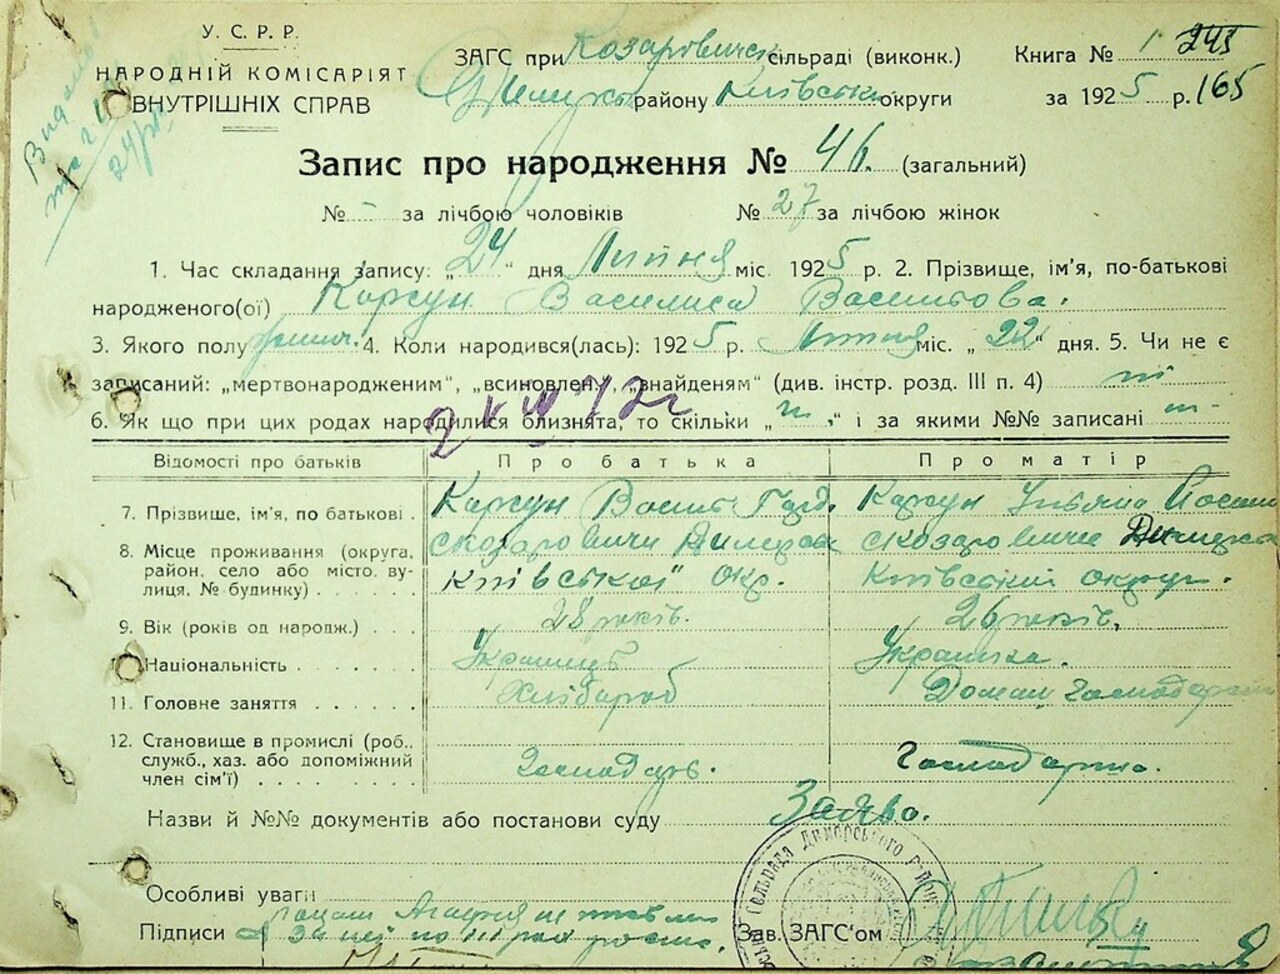 У. С. Р. Р.
НАРОДНІЙ КОМІСАРІЯТ
ВНУТРІШНІХ СПРАВ
ЗАГС при Козаровичск сільраді (виконк.) Книга № 1 245
району Київської округи за 1925 р. 165
Запис про народження № 46. (загальний)
№ - за лічбою чоловіків № 27 за лічбою жінок
1. Час складання запису: „24“ дня Липня міс. 1925 р. 2. Прізвище, ім'я, по-батькові
народженого(ої) Карсун Василиса Васильова.
3. Якого полу жіноч. 4. Коли народився(лась): 1925 р. Липня міс. „22“ дня. 5. Чи не є
записаний: „мертвонародженим“, „всиновлен“, „знайденям“ (див. інстр. розд. III п. 4) ні
6. Як що при цих родах народилися близнята, то скільки „ “ і за якими №№ записані
Відомості про батьків Про батька Про матір
7. Прізвище, ім'я, по батькові . Карсун Василь Карсун Уляна
8. Місце проживання (округа, с Козаровичи Димерськ с Козаровичи Димерськ
район, село або місто, ву-
лиця, № будинку) . . . . . Київської окр. Київський округи.
9. Вік (років од народж.) . . . 28 років. 26 років.
10. Національність . . . . . . Українець Українка.
11. Головне заняття . . . . . . Хлібороб Домаш. Господарств
12. Становище в промислі (роб.,
служб., хаз. або допоміжний
член сім'ї) . . . . . . . . Господарь. Господарша.
Назви й №№ документів або постанови суду Заява.
Особливі уваги
Підписи Зав. ЗАГС'ом
Сельрада Димерського район